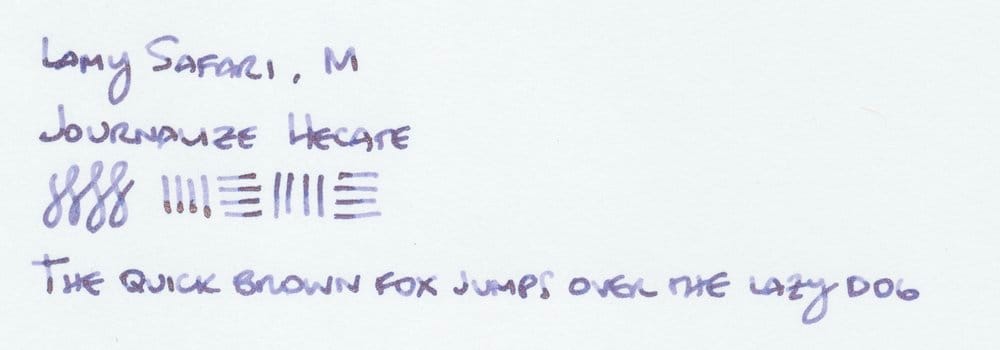 Lamy Safari, M
Journalize Hecate
The quick brown fox jumps over the lazy dog